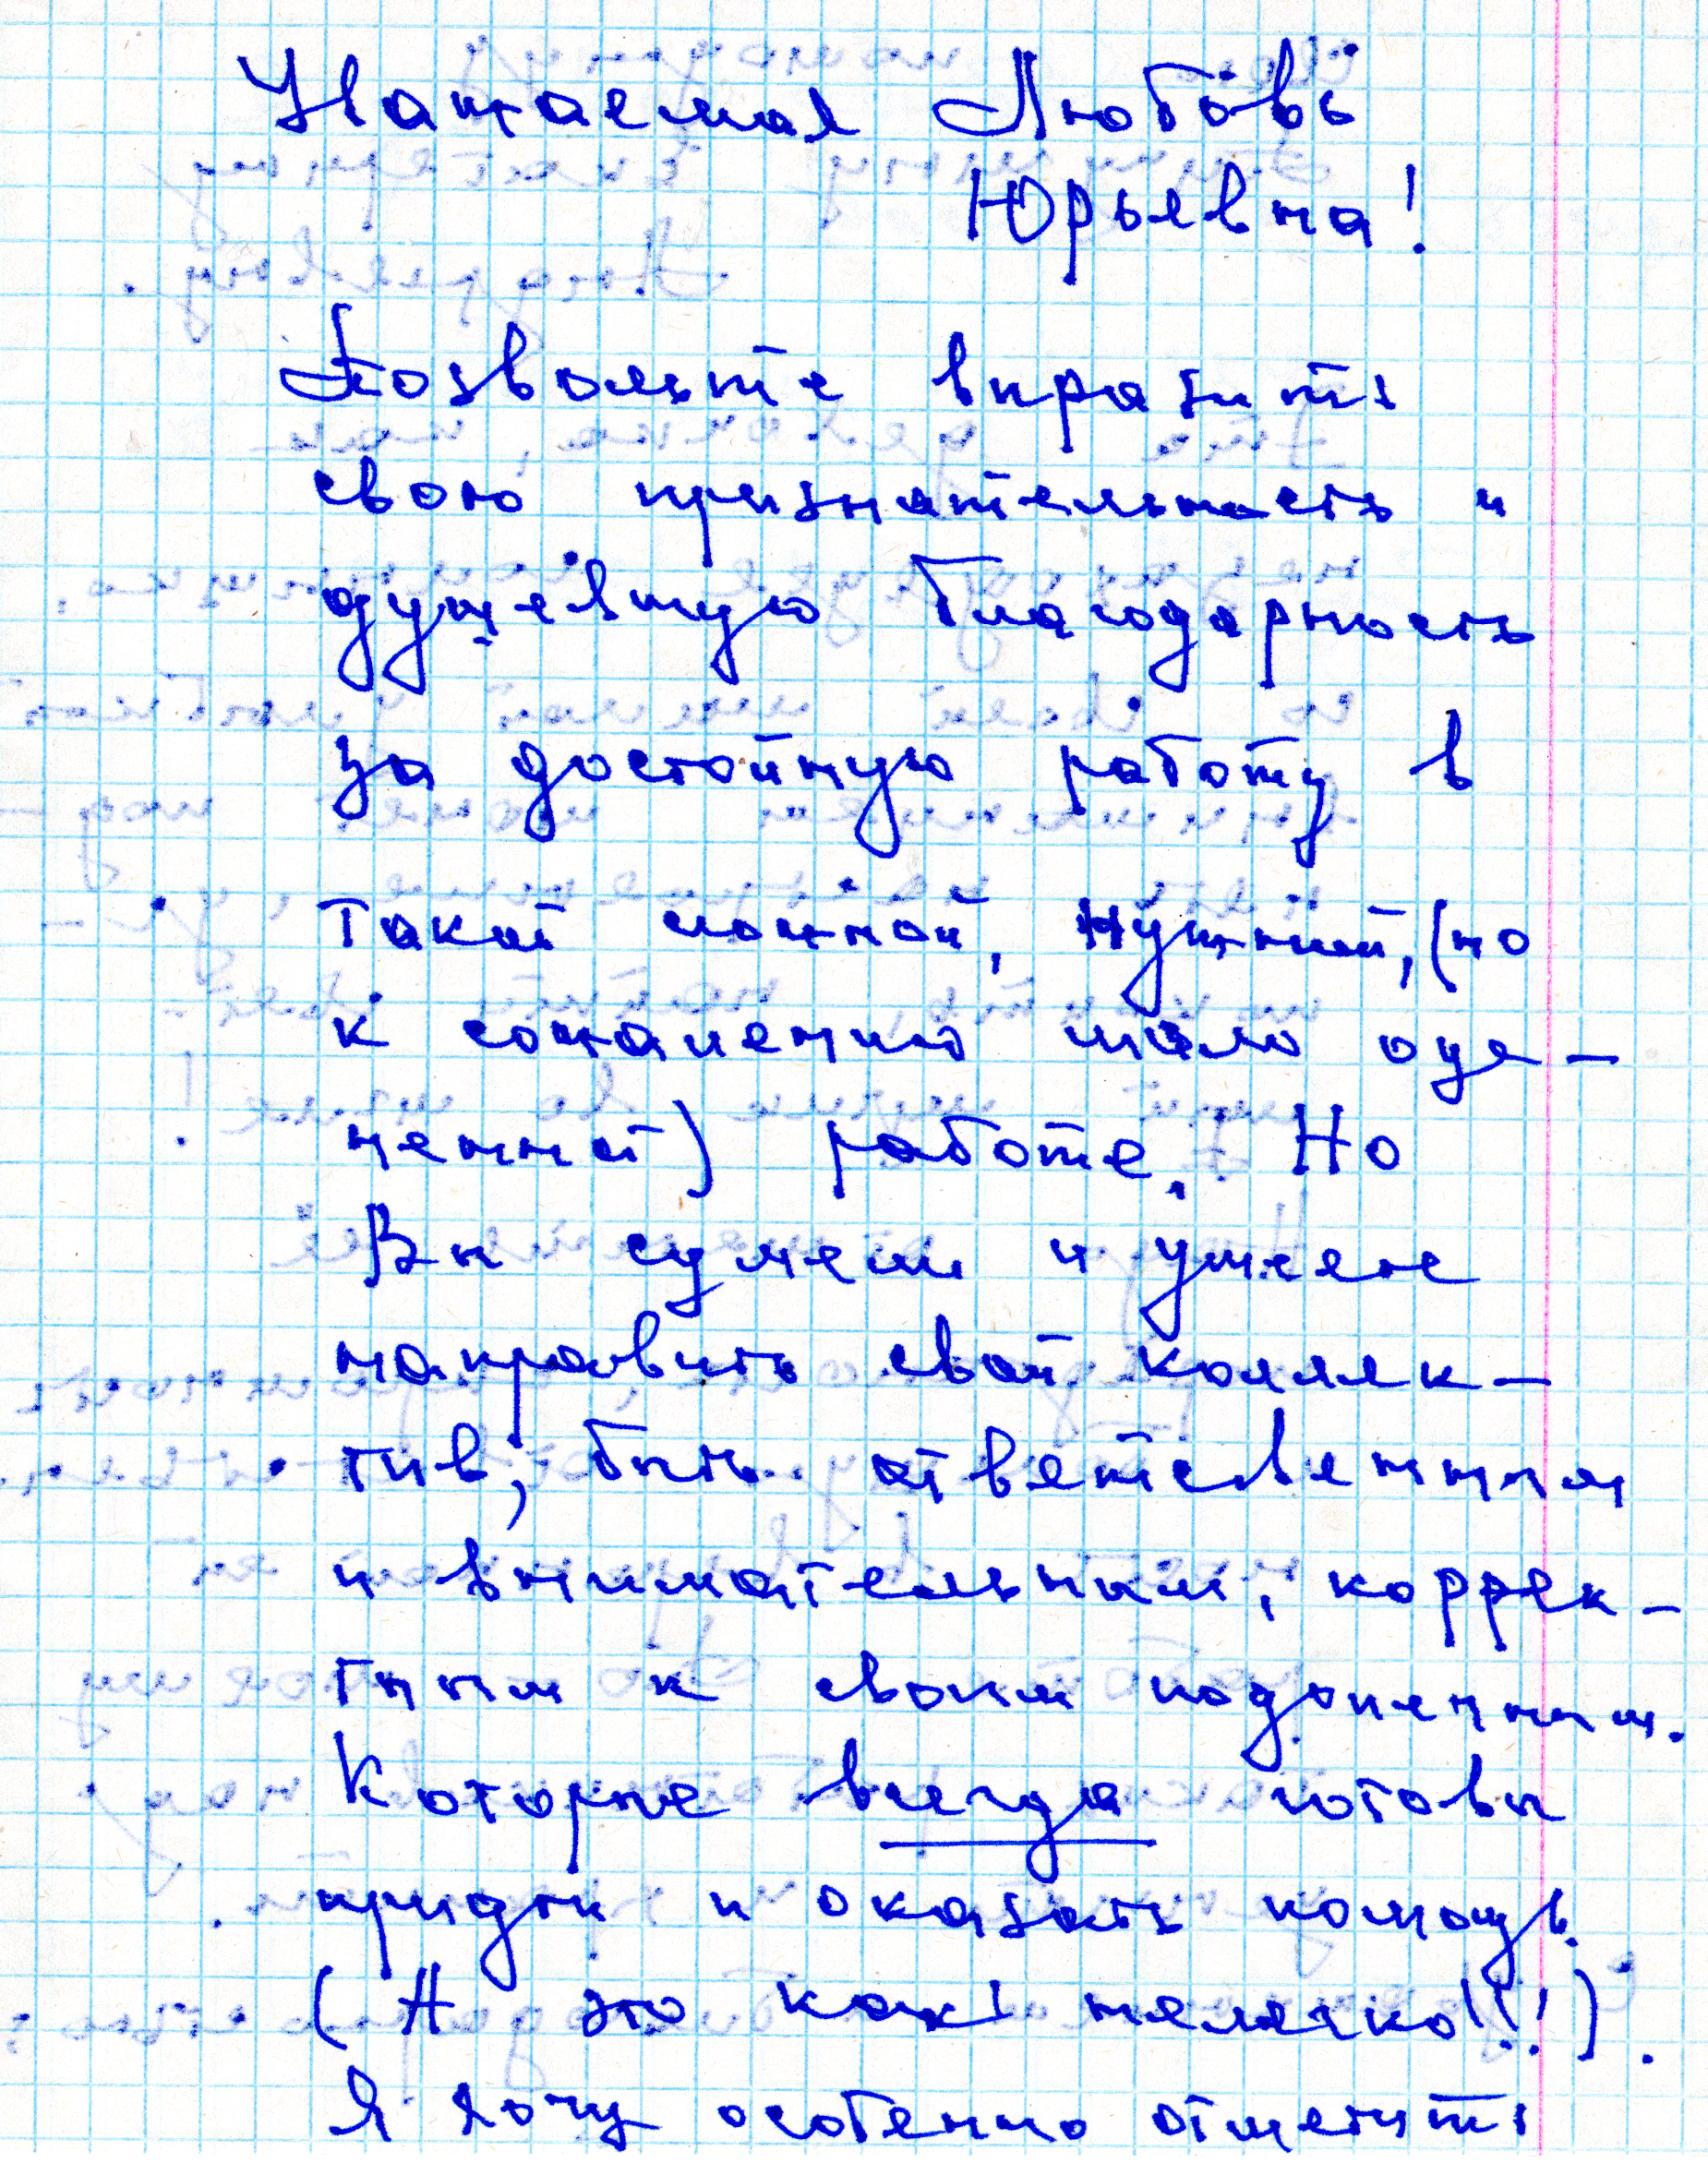 Уважаемая Любовь
Юрьевна!
Позвольте выразить
свою признательность и
душевную благодарность
за достойную работу в
такой сложной, нужной, (но
к сожалению мало оце-
ненной) работе. Но
Вы сумели и умеете
направить свой коллек-
тив, быть ответственным
и внимательным, коррек-
тным к своим подопечным.
Которые всегда готовы
придти и оказать помощь.
(А это как нелегко!!!).
Я хочу особенно отметить